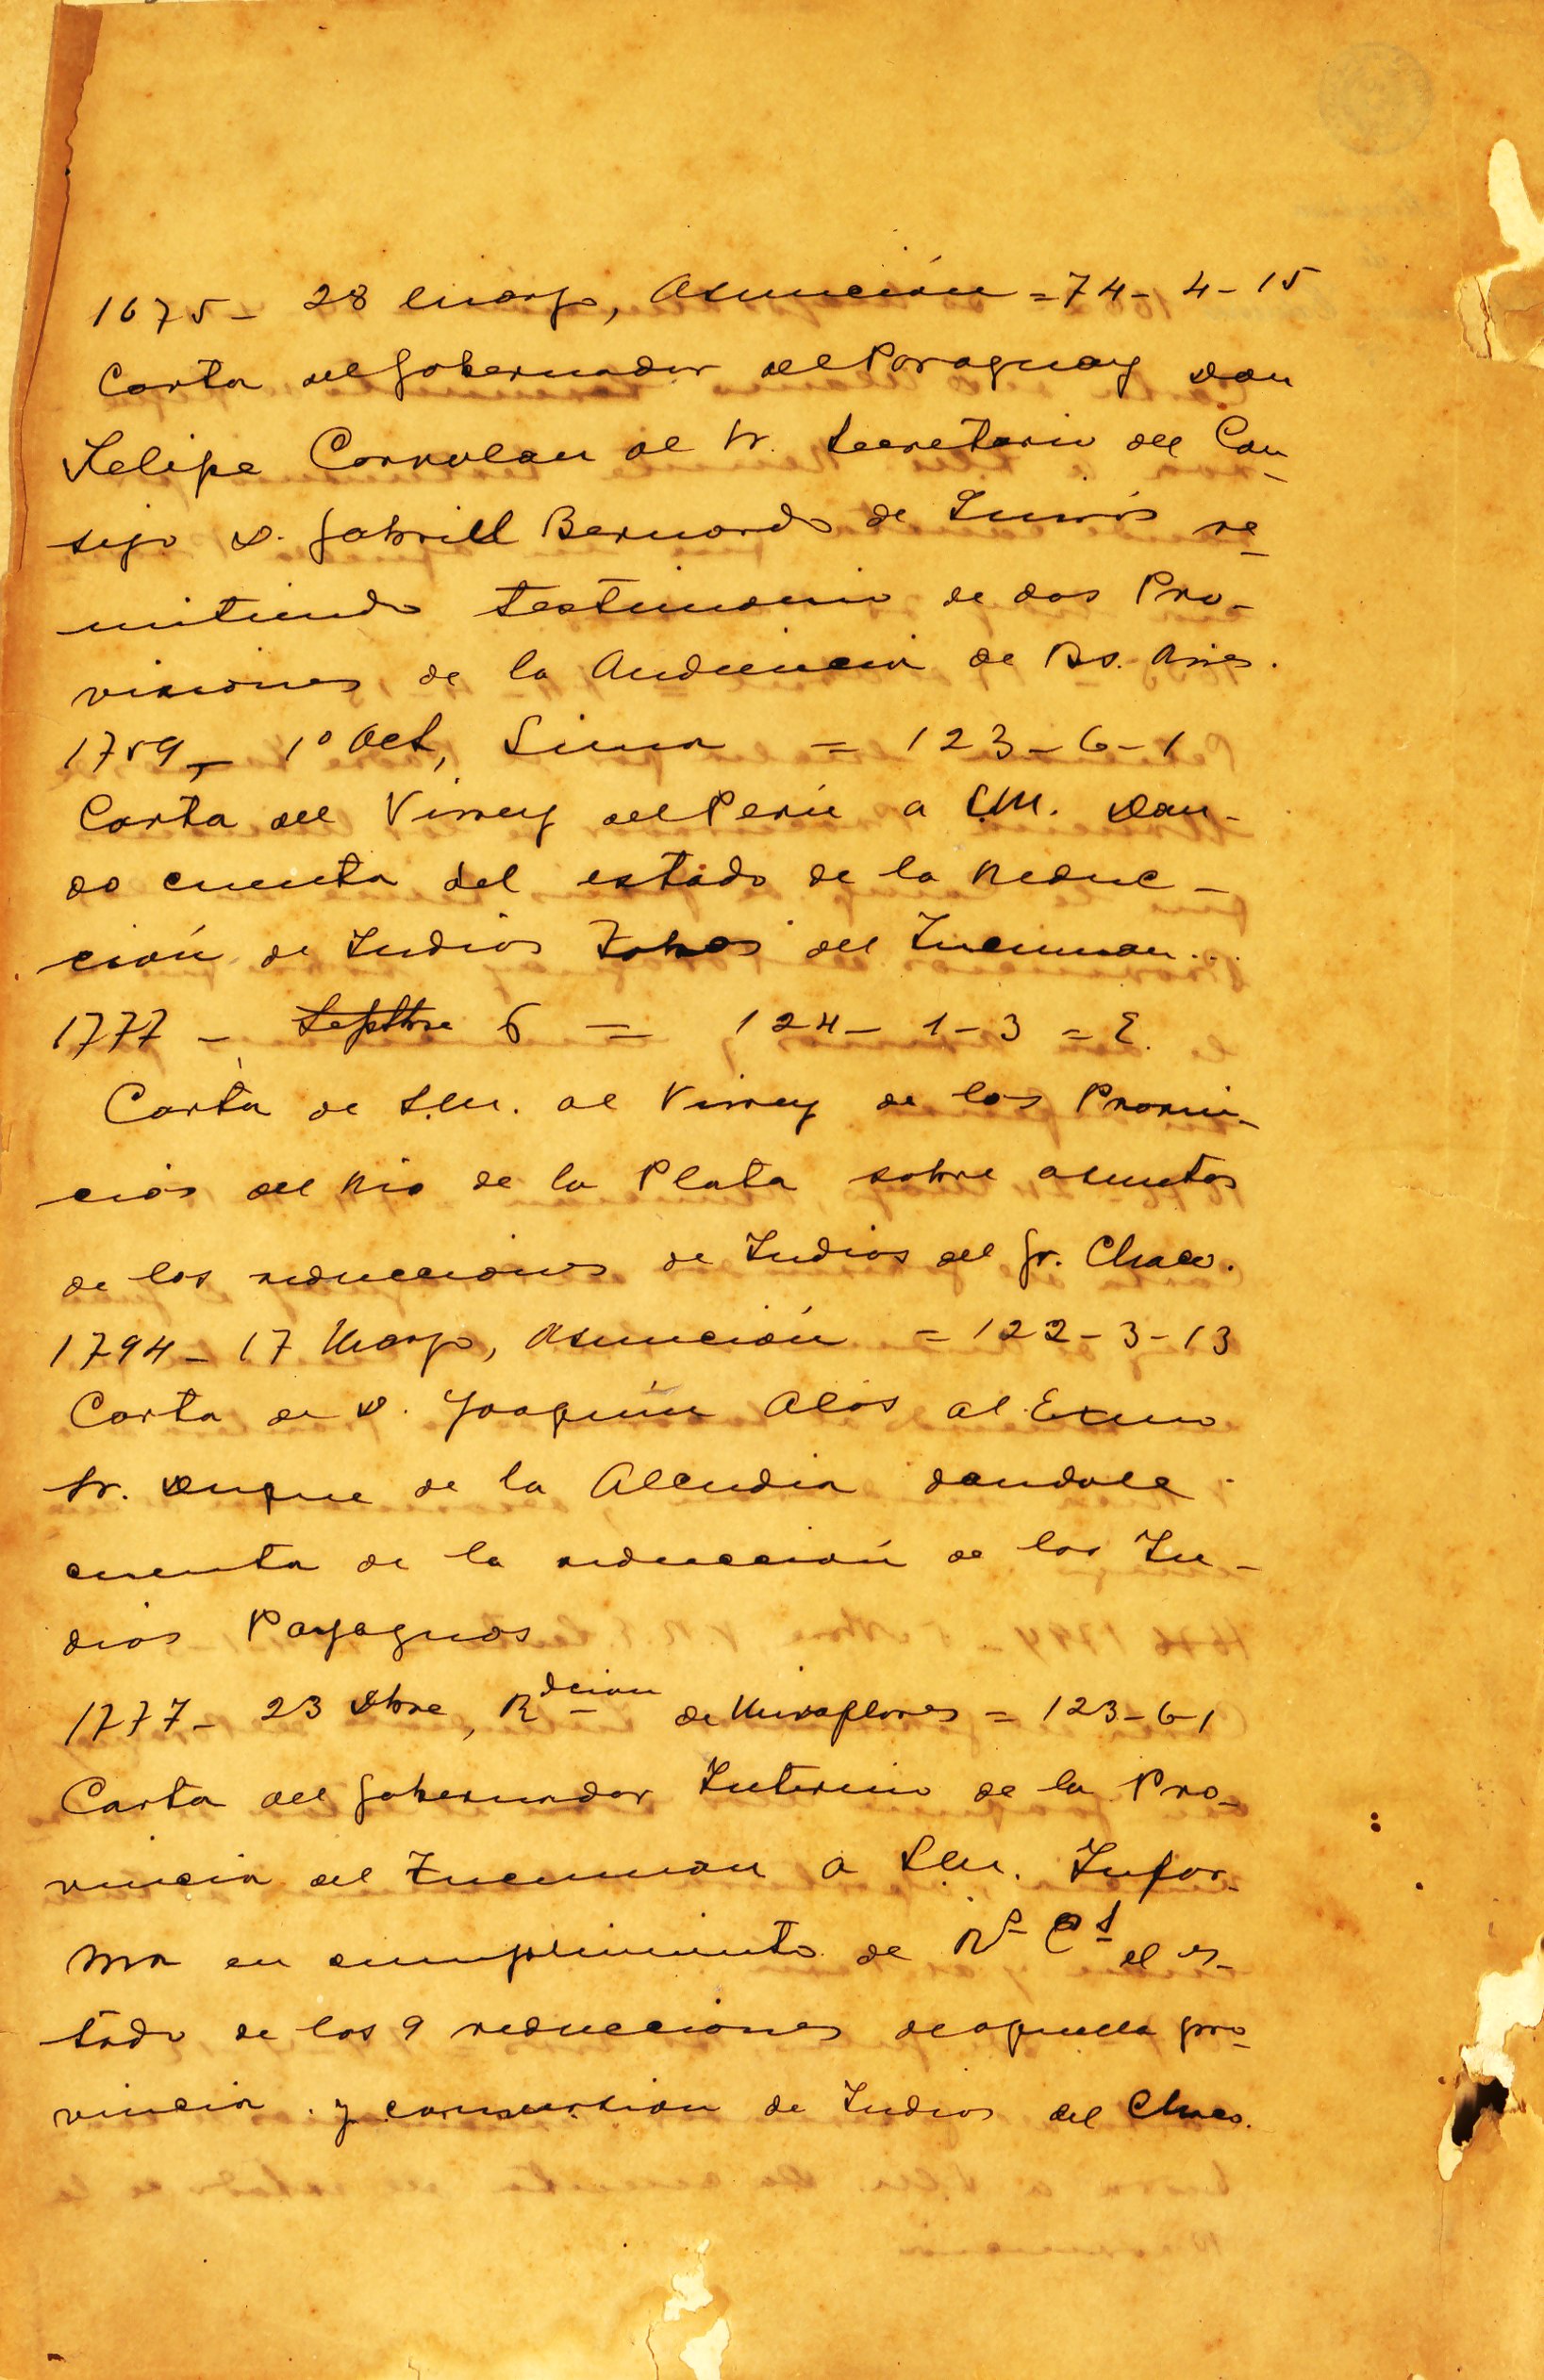 1675 - 28 Marzo, Asunción = 74 - 4 - 15
Carta del Gobernador del Paraguay Don
Felipe Corvalan al Sr. Secretario del Con-
sejo D. Gabriel Bernardo de Quirós re-
mitiendo testimonio de dos Pro-
visiones, de la Audiencia de Bs. Aires.
1759 - 1º Oct, Lima = 123 - 6 - 1
Carta del Virrey del Perú a S.M. Dan-
do cuenta del estado de la Reduc-
ción de Indios Tobas del Tucuman...
1777 - Septbre 6 = 124 - 1 - 3 = E.
Carta de S.M. al Virrey de las Provin-
cias del Rio de la Plata, sobre asuntos
de las reducciones de Indios del Gr. Chaco.
1794 - 17 Marzo, Asunción = 122 - 3 - 13
Carta de D. Joaquín Alós al Excmo
Sr. Duque de la Alcudia dandole
cuenta de la reducción de los In-
dios Payaguas
1777 - 23 Dbre, Rdcion de Miraflores = 123 - 6 - 1
Carta del Gobernador Interino de la Pro-
vincia del Tucuman a S.M. Infor-
ma en cumplimiento de Rl Cd el es-
tado de las 9 reducciones de aquella pro-
vincia y conversion de Indios del Chaco.